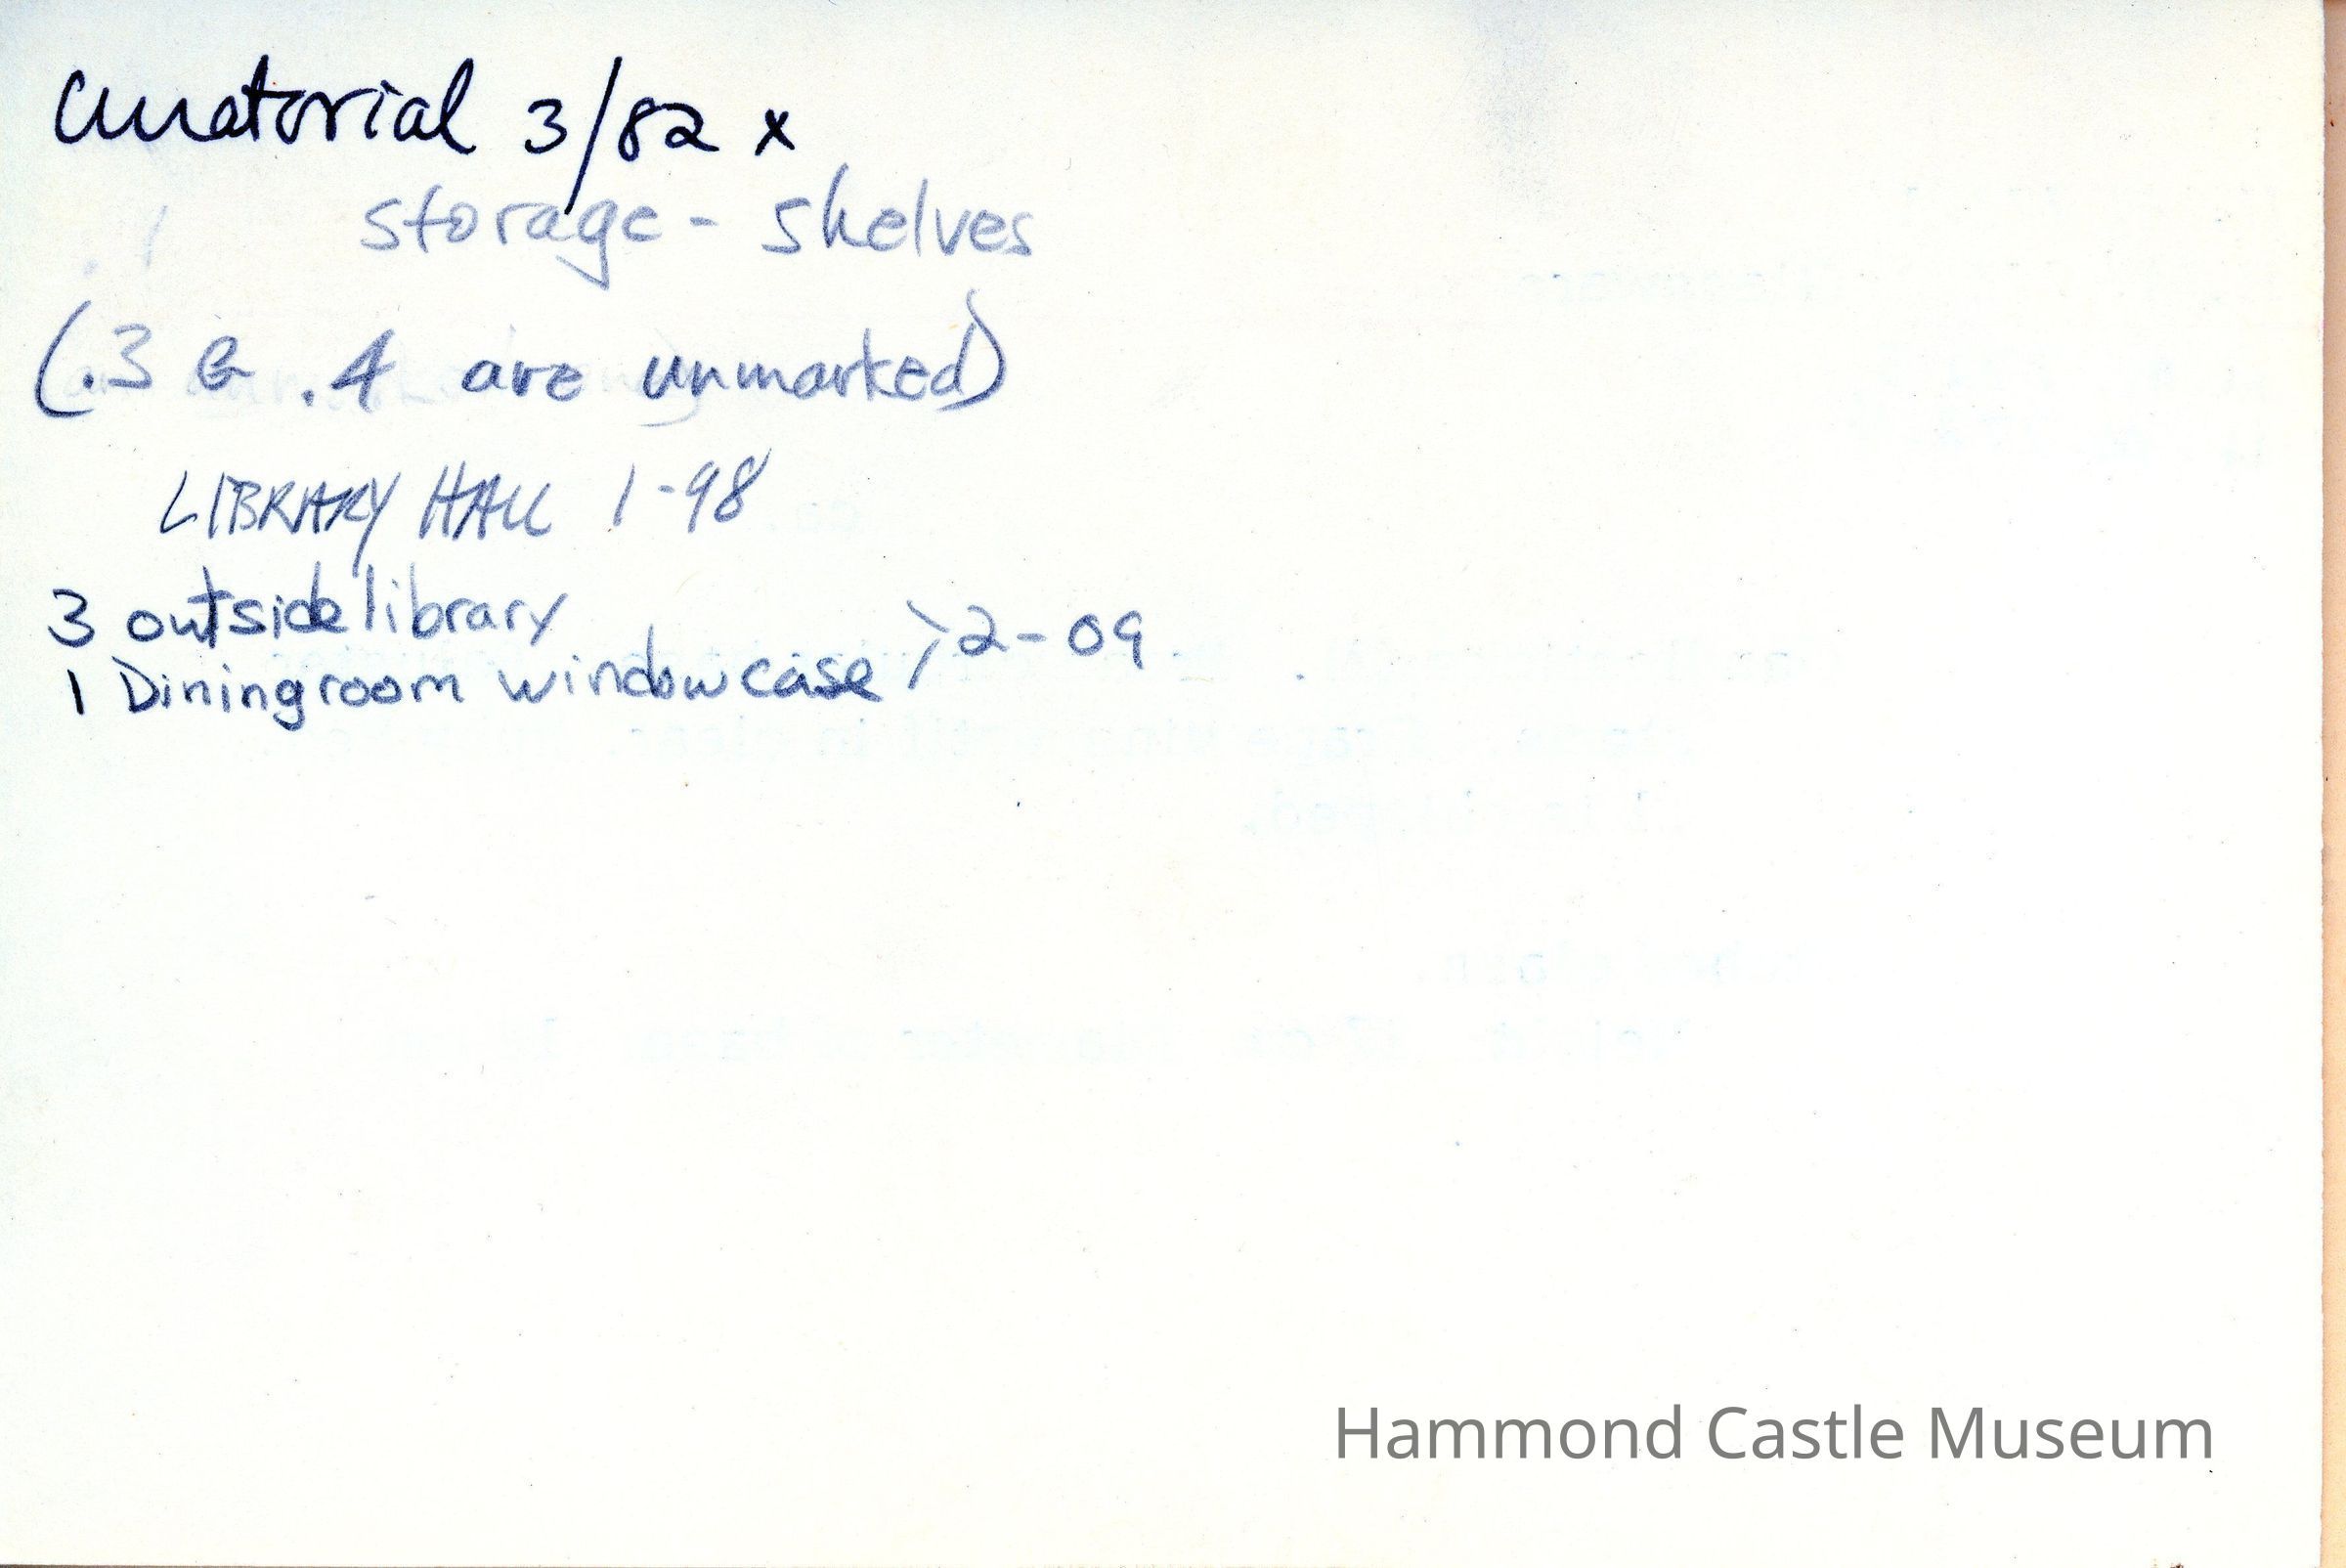 Curatorial 3/82 x
storage - shelves
(.3 & .4 are unmarked)
LIBRARY HALL 1-98
3 outside library
1 Dining room window case > 2-09
Hammond Castle Museum